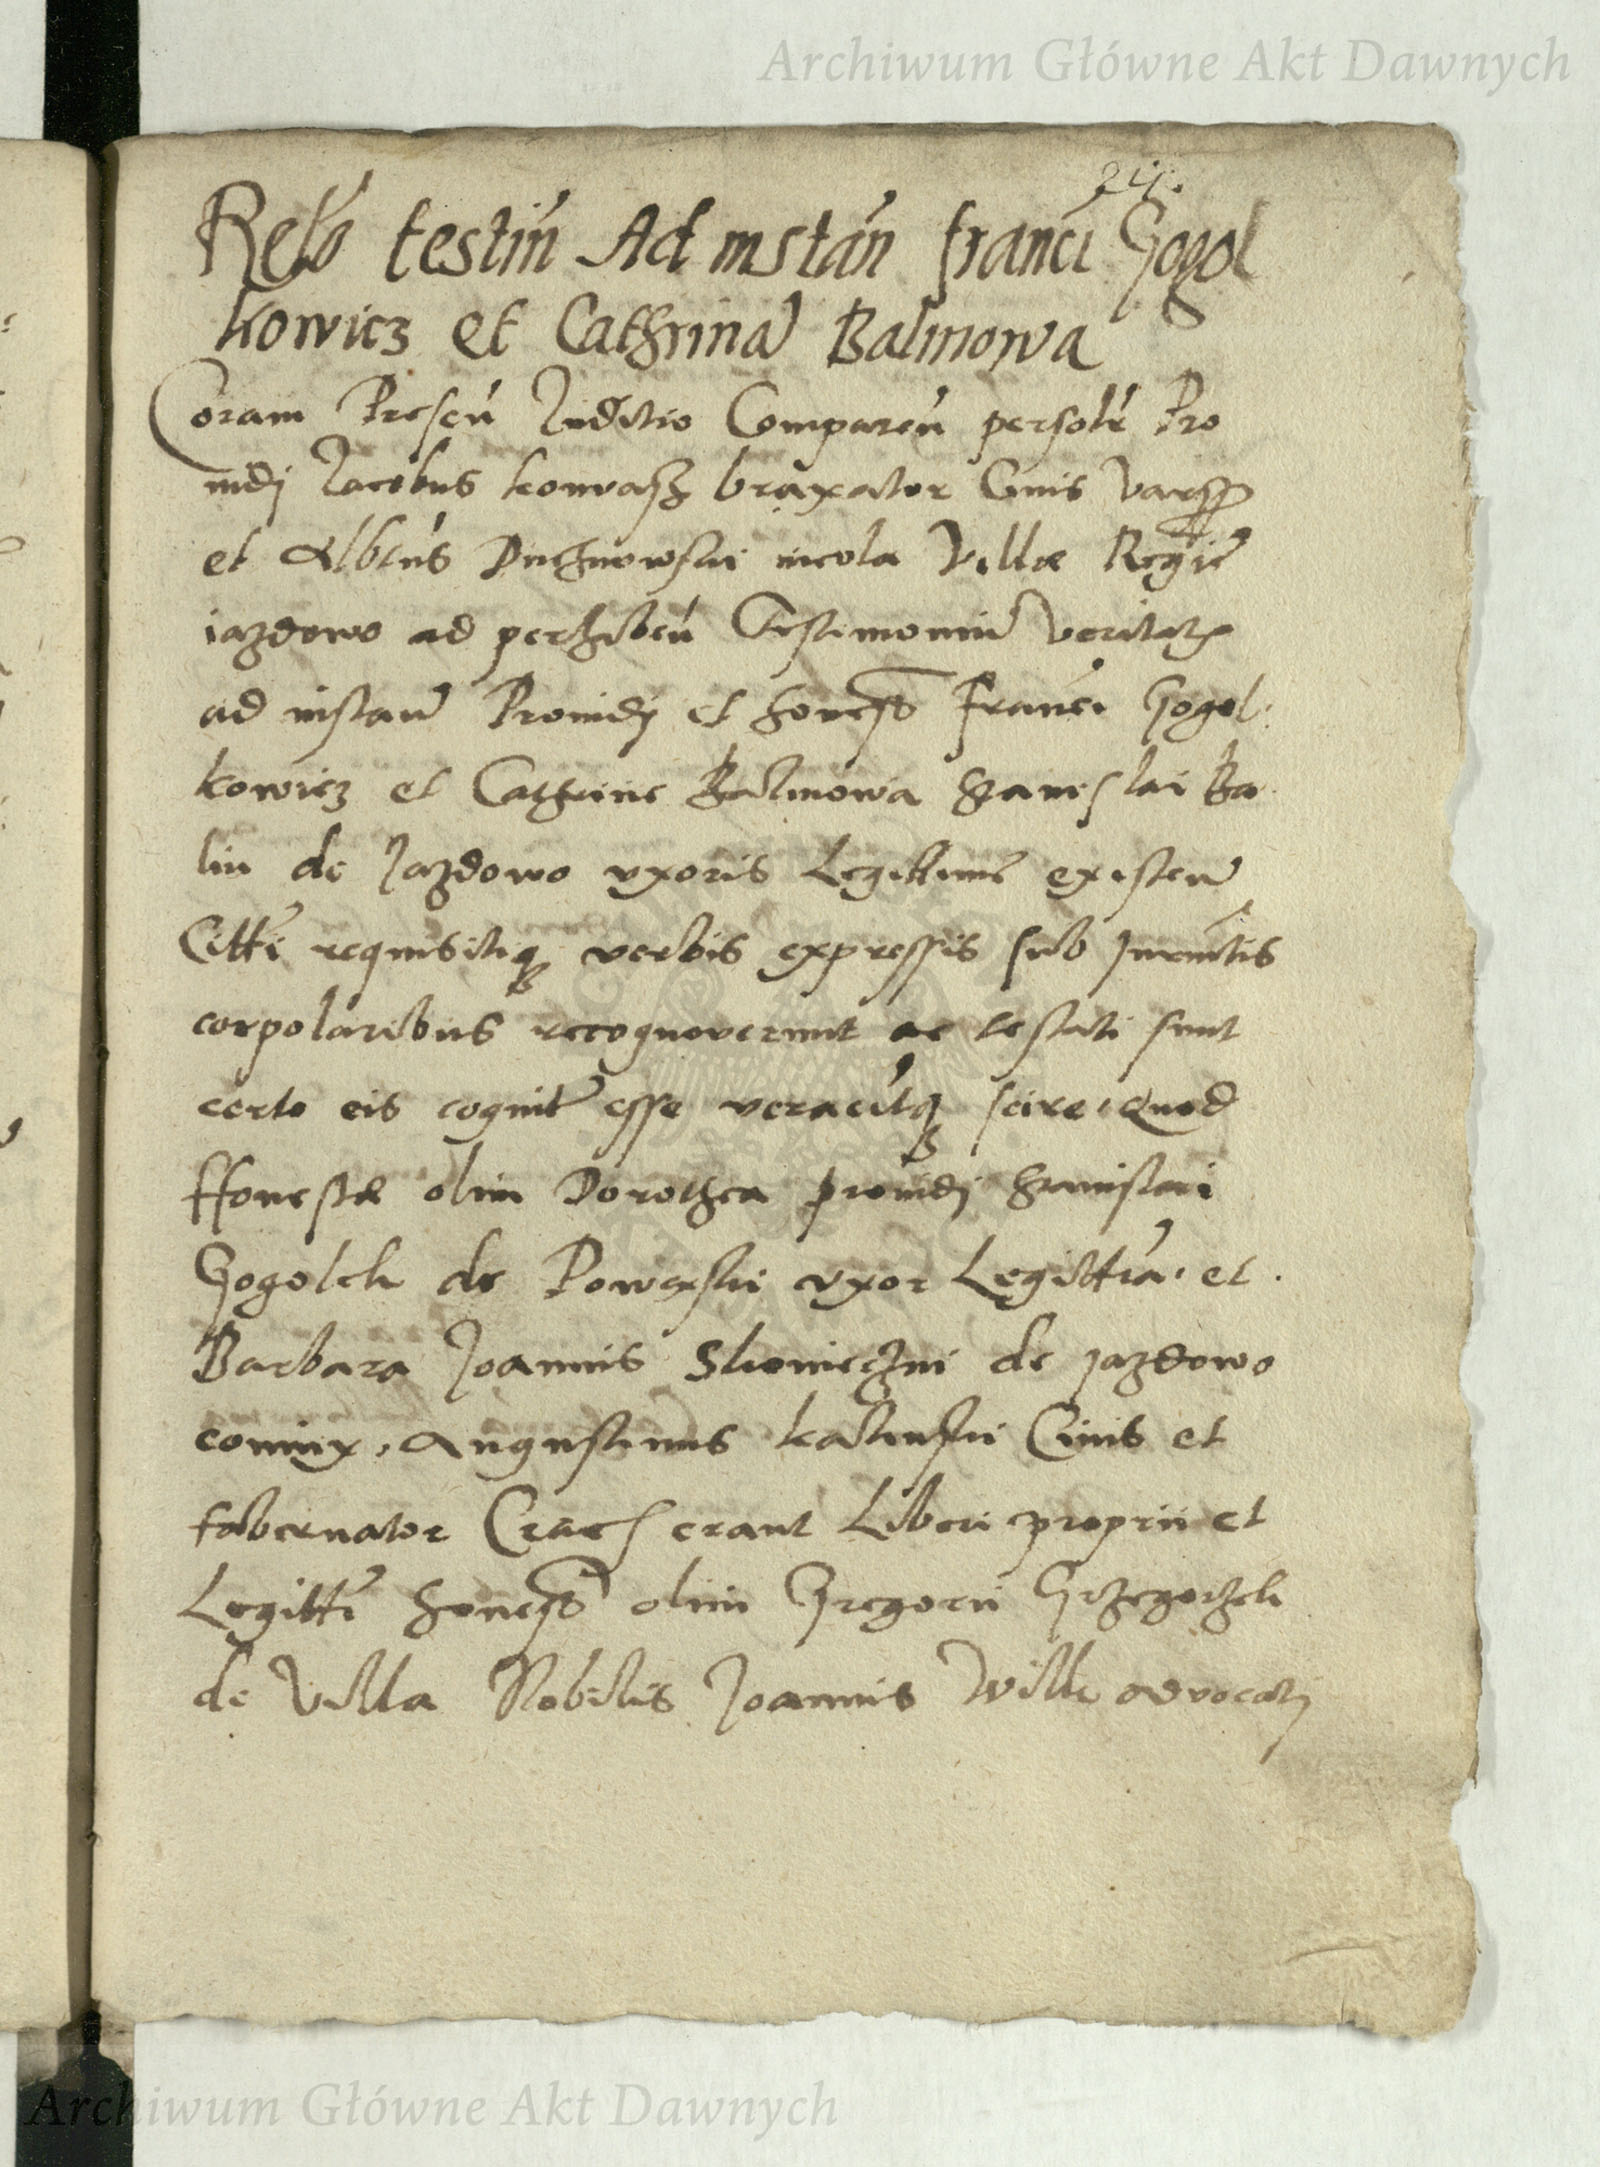 Archiwum Główne Akt Dawnych
Relõ testiũ Ad instãn franci Gogol
kowicz et Cathrinæ Balinowa
Coram Preseñ Iuditio Compareñ persoľr Pro
uidj Jacobus konwasz braxator Ciuis Vars
et Albtũs Duchnowski incola Villæ Regiæ
iazdowo ad perhibeñ Testimoniũ Veritatis
ad instañ Prouidj et honestæ Franci Gogol
kowicz et Cathrine Balinowa Stanislai Ba
lin de Jazdowo uxoris Legittime existeñ
Citti requisitiq verbis expressis sub Jurmtis
corpolaribus recognouerunt ac testati sunt
certo eis cognitũ esse veracitq scire, Quod
Honestæ olim Dorothea prouidj Stanislai
Gogolek de Powaski uxor Legittĩa, et
Barbara Joannis Skonieczni de jazdowo
coniux, Augustinus kalinski Ciuis et
tabernator Crac erant Liberi proprii et
Legittĩ honest olim Gregorii Grzegorzek
de Villa Nobilis Joannis Wilk advocatj
Archiwum Główne Akt Dawnych